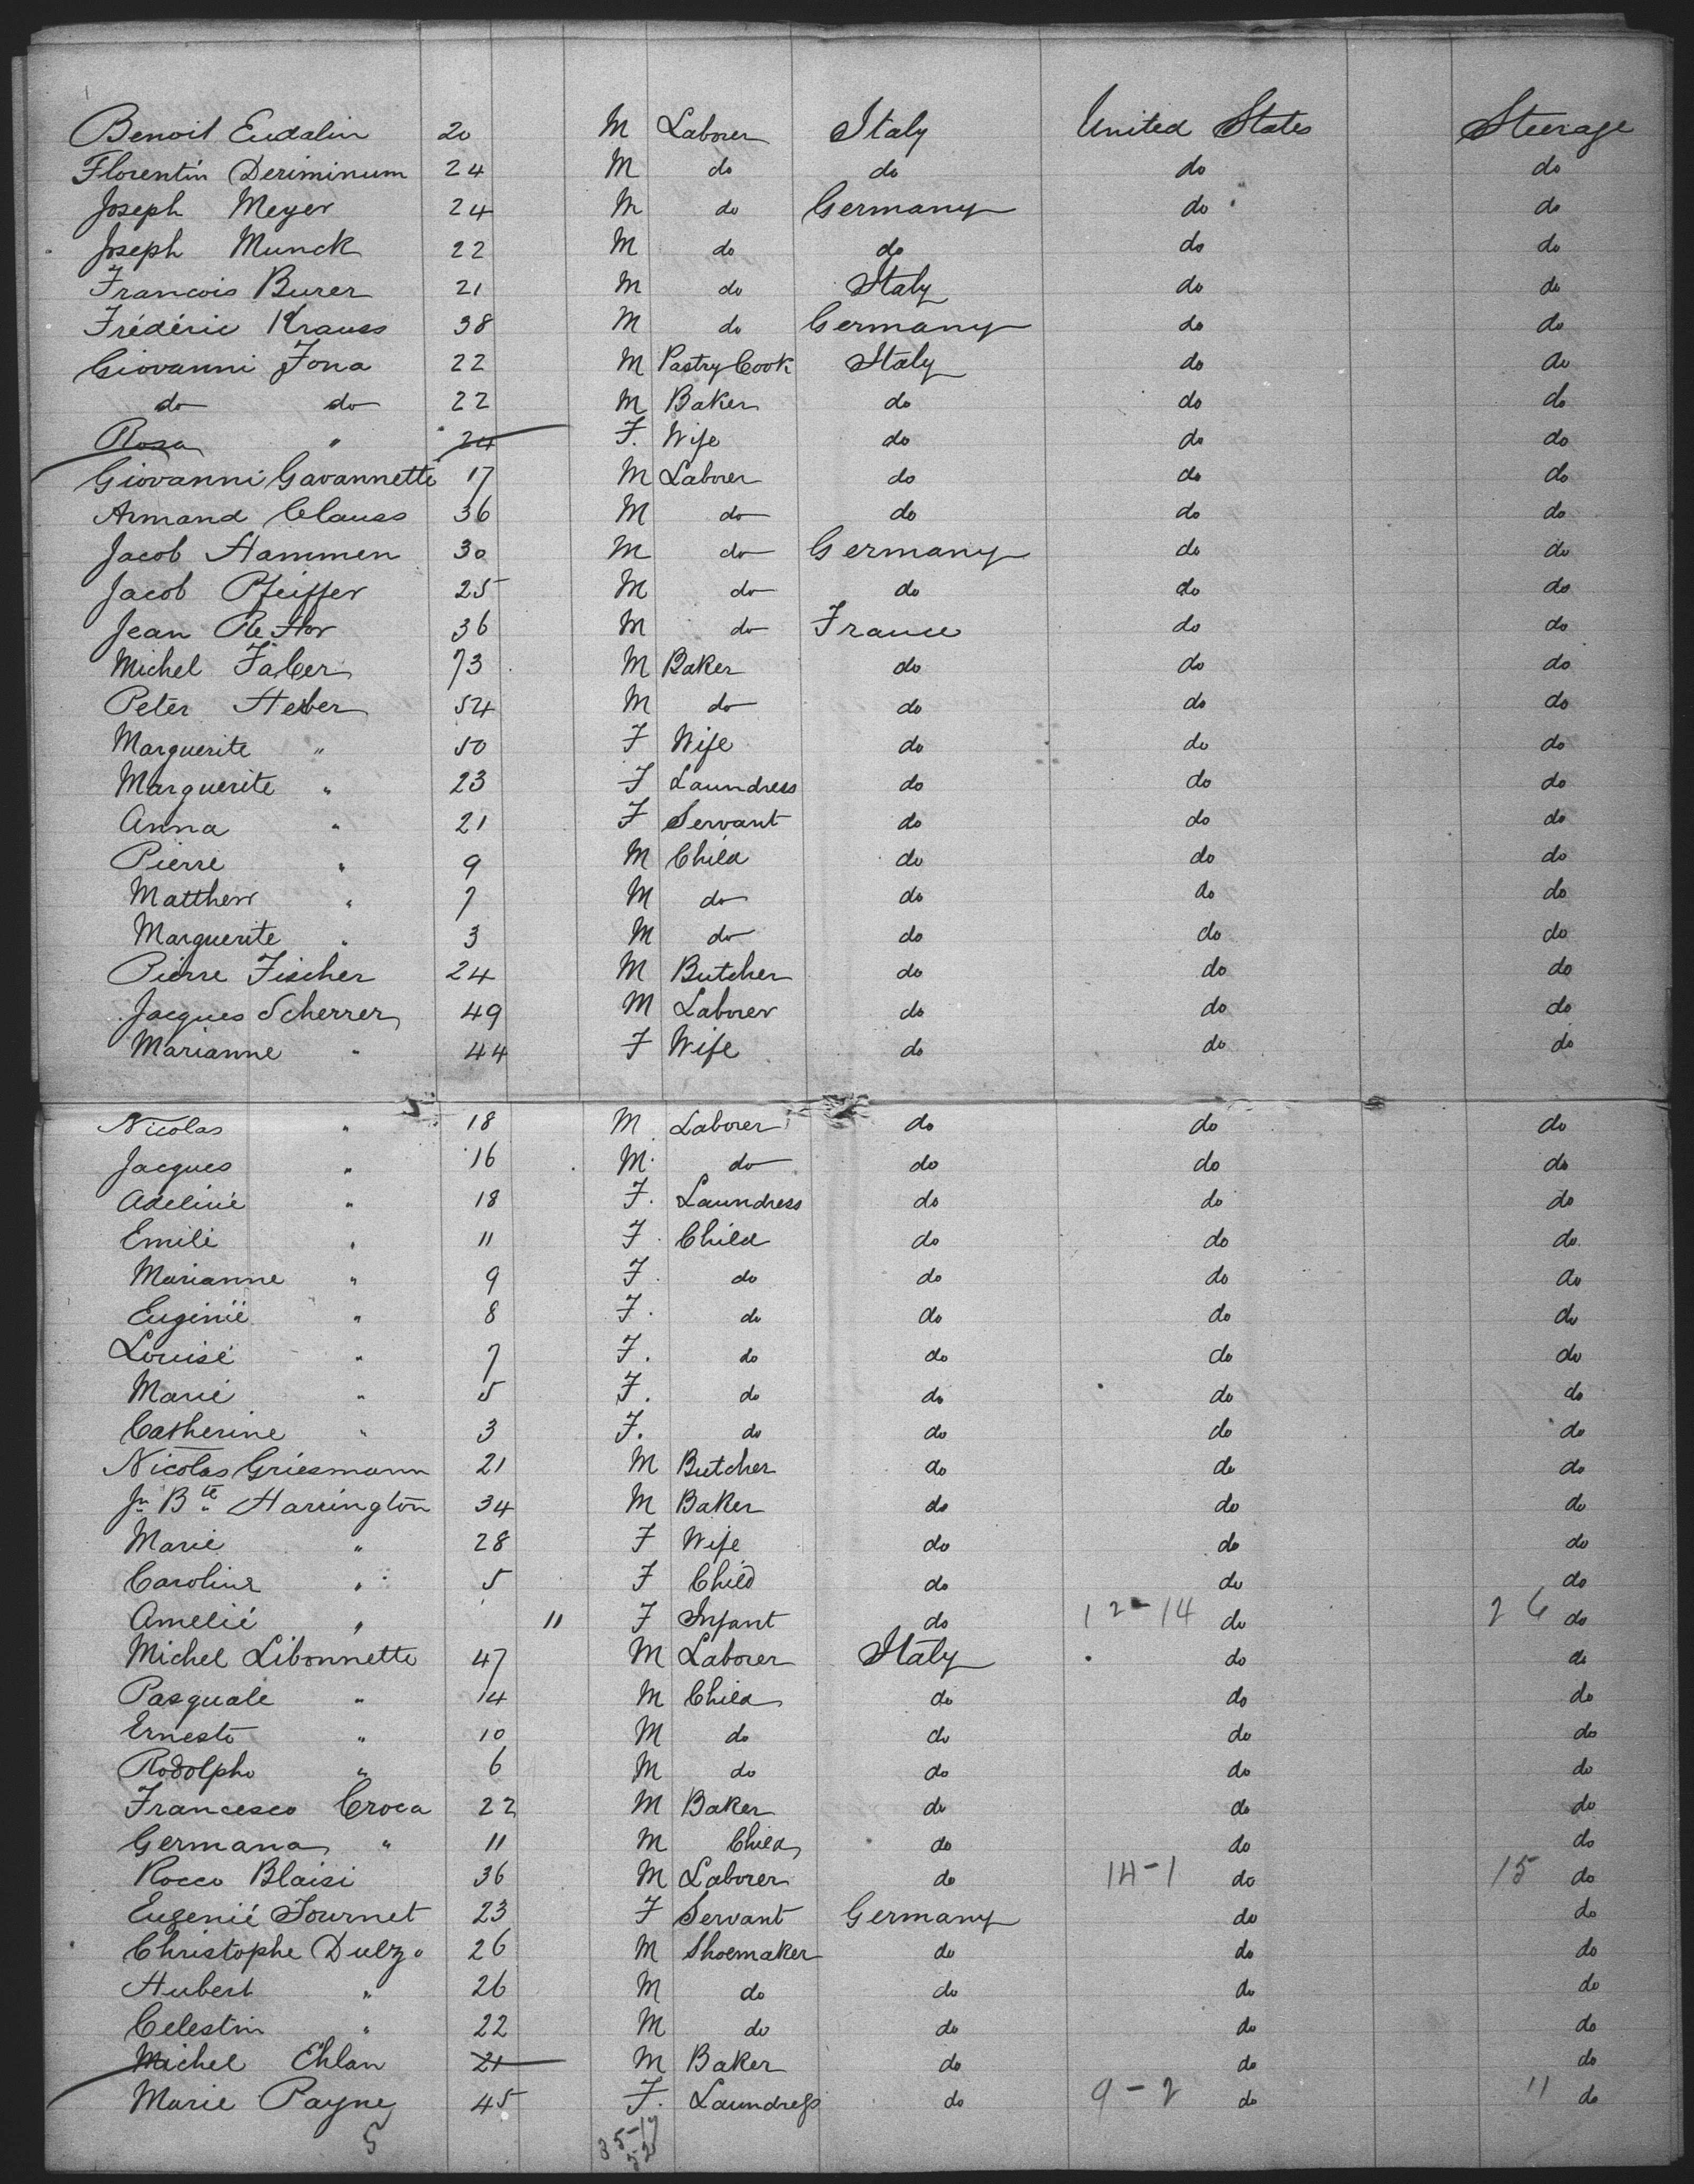 Benoit Eudalin 20 M Laborer Italy United States Steerage
Florentin Deriminum 24 M do do do do
Joseph Meyer 24 M do Germany do do
Joseph Munck 22 M do do do do
Francois Burer 21 M do Italy do do
Frédéric Krauss 38 M do Germany do do
Giovanni Jona 22 M Pastry Cook Italy do do
do do 22 M Baker do do do
Rosa " 24 F. Wife do do do
Giovanni Gavannette 17 M Laborer do do do
Armand Clauss 36 M do do do do
Jacob Hammen 30 M do Germany do do
Jacob Pfeiffer 25 M do do do do
Jean 36 M do France do do
Michel Faber 73 M Baker do do do
Peter Heber 54 M do do do do
Marguerite " 50 F Wife do do do
Marguerite " 23 F Laundress do do do
Anna " 21 F Servant do do do
Pierre " 9 M Child do do do
Matthew " 7 M do do do do
Marguerite " 3 M do do do do
Pierre Fischer 24 M Butcher do do do
Jacques Scherrer 49 M Laborer do do do
Marianne " 44 F Wife do do do
Nicolas " 18 M Laborer do do do
Jacques " 16 M do do do do
Adeline " 18 F. Laundress do do do
Emile " 11 F. Child do do do
Marianne " 9 F. do do do do
Eugénie " 8 F. do do do do
Louise " 7 F. do do do do
Marie " 5 F. do do do do
Catherine " 3 F. do do do do
Nicolas Griesmann 21 M Butcher do do do
Jn Bte Harrington 34 M Baker do do do
Marie " 28 F Wife do do do
Caroline " 5 F Child do do do
Amelie " 11 F Infant do 12-14 do 26 do
Michel Libonnette 47 M Laborer Italy do do
Pasquale " 14 M Child do do do
Ernesto " 10 M do do do do
Rodolpho " 6 M do do do do
Francesco Croca 22 M Baker do do do
Germana " 11 M Child do do do
Rocco Blaisi 36 M Laborer do 14-1 do 15 do
Eugenie Journet 23 F Servant Germany do do
Christophe Dulzo 26 M Shoemaker do do do
Hubert " 26 M do do do do
Celestin " 22 M do do do do
Michel Ehlan 21 M Baker do do do
Marie Payne 45 F. Laundress do 9-2 do 11 do
5 35-17